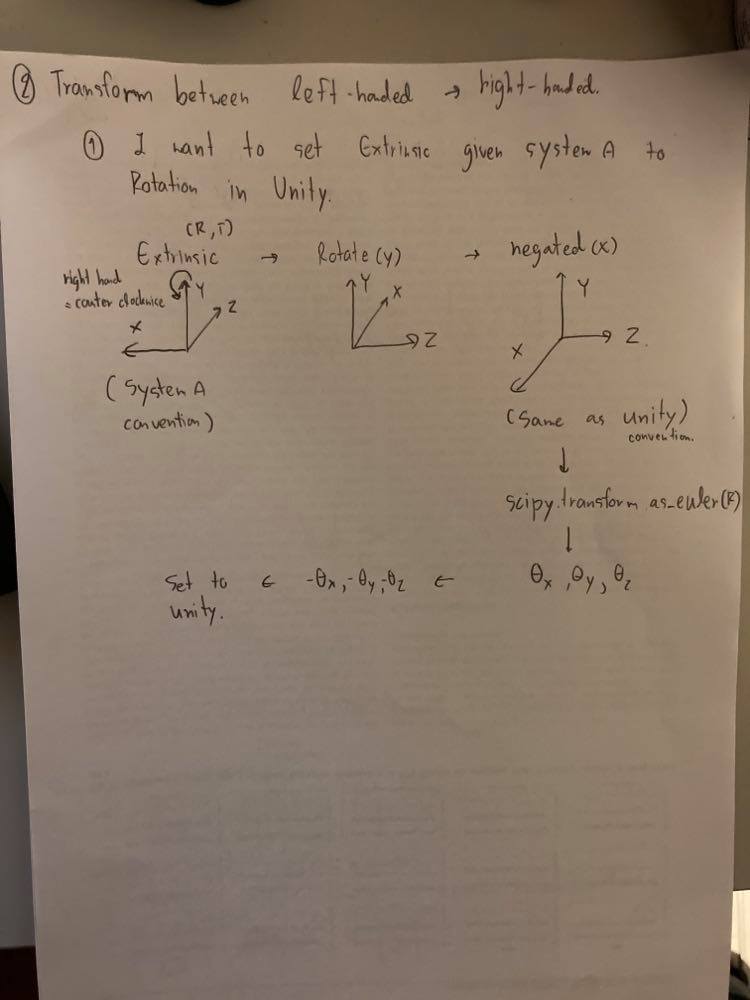 ② Transform between left-handed → right-handed.
① I want to set Extrinsic given system A to
Rotation in Unity.
(R,T)
Extrinsic → Rotate (y) → negated (x)
right hand
= couter clockwise
Y
Z
X
Y
X
Z
Y
Z.
X
(System A
convention)
(Same as unity)
convention.
↓
scipy.transform as_euler(R)
↓
Set to ← -θx, -θy, -θz ← θx, θy, θz
unity.